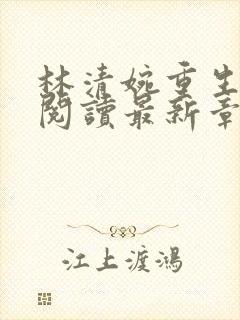 林清婉重生
閱讀最新章
江上渡鴻